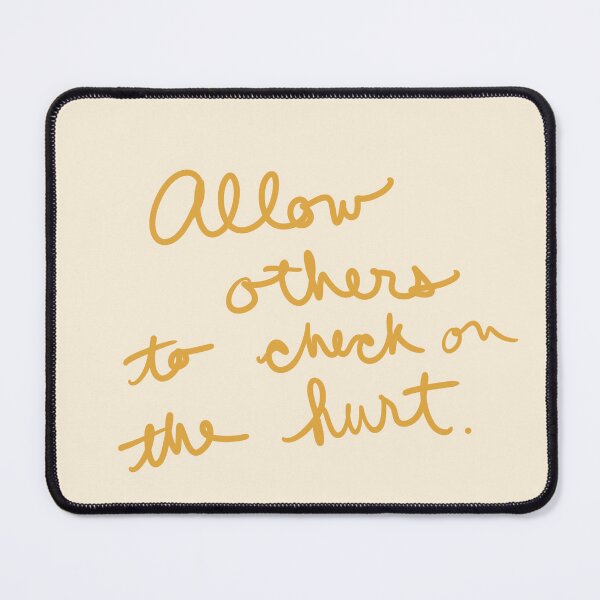 Allow
others
to check on
the hurt.